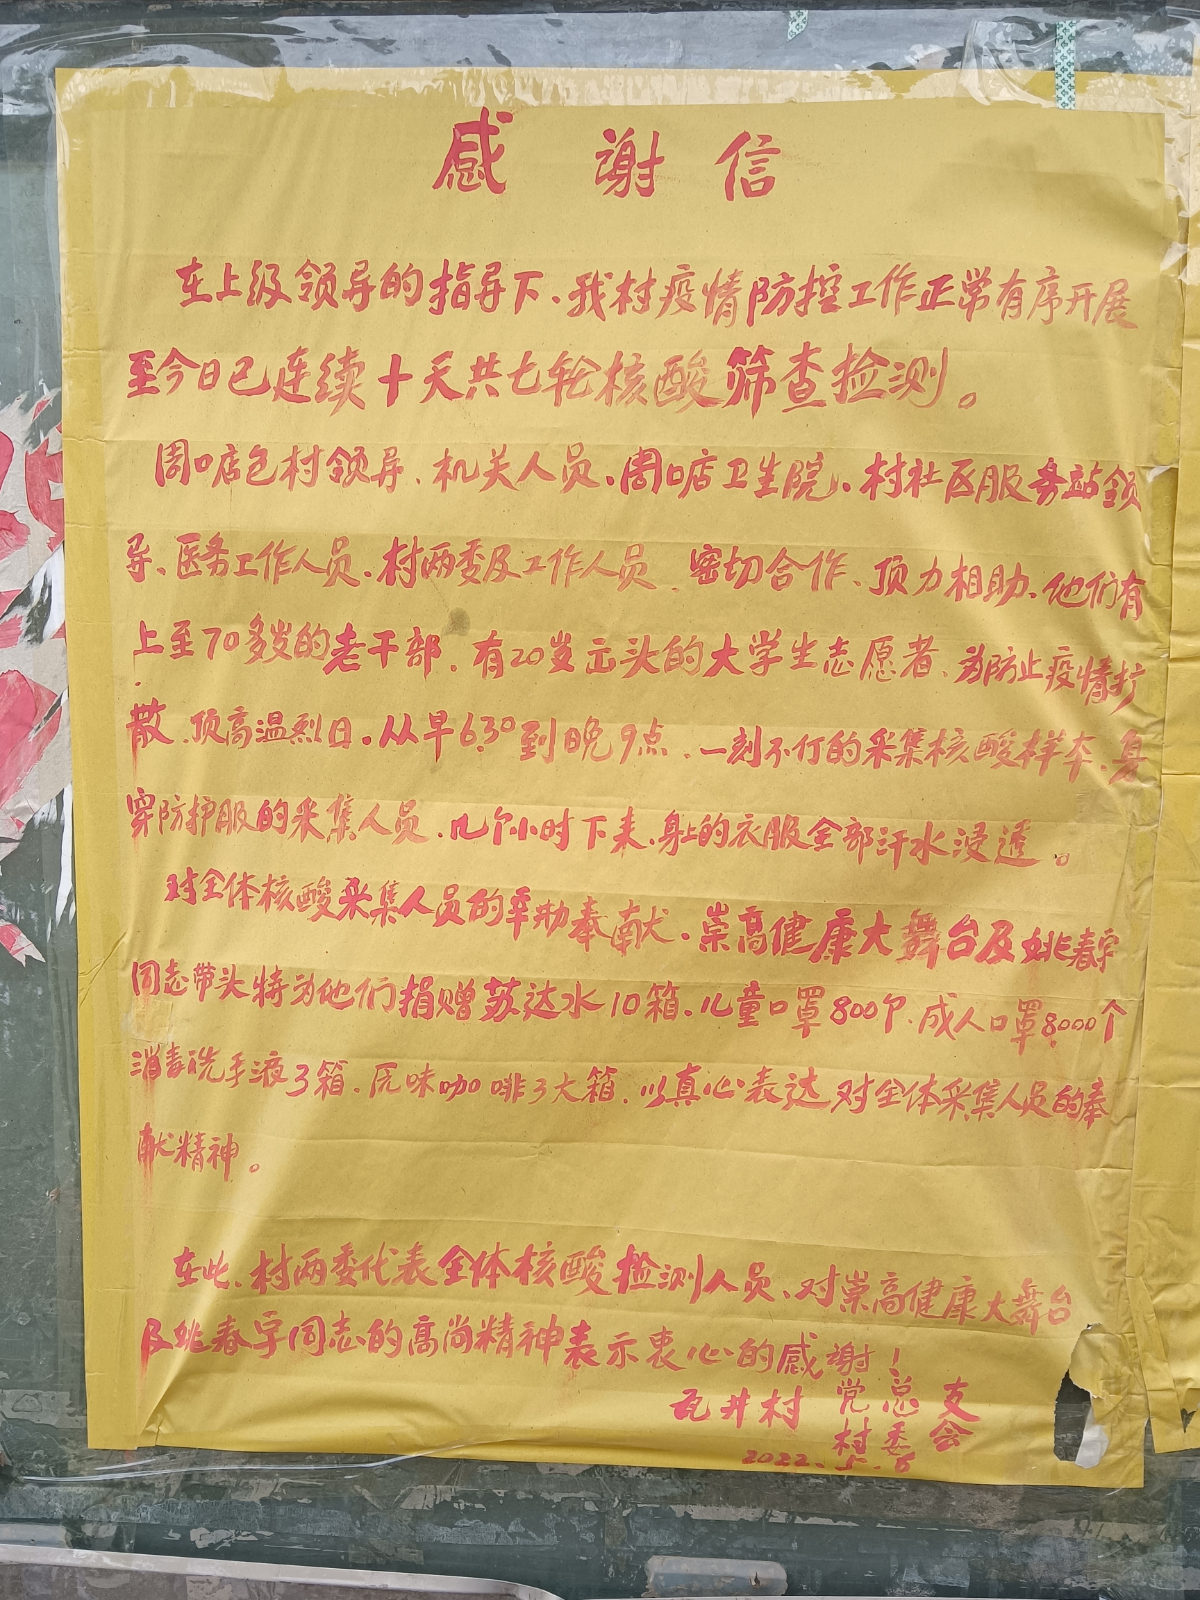 感谢信
在上级领导的指导下、我村疫情防控工作正常有序开展
至今日已连续十天共七轮核酸筛查检测。
周口店包村领导、机关人员、周口店卫生院、村社区服务站领
导、医务工作人员、村两委及工作人员、密切合作、顶力相助、他们有
上至70多岁的老干部、有20岁出头的大学生志愿者、为防止疫情扩
散、顶高温烈日、从早6.30到晚9点、一刻不停的采集核酸样本、身
穿防护服的采集人员、几个小时下来、身上的衣服全部汗水浸透。
对全体核酸采集人员的辛勤奉献、崇高健康大舞台及姚春字
同志带头特为他们捐赠苏达水10箱、儿童口罩800个、成人口罩8000个
消毒洗手液3箱、原味咖啡3大箱、以真心表达对全体采集人员的奉
献精神。
在此、村两委代表全体核酸检测人员、对崇高健康大舞台
及姚春字同志的高尚精神表示衷心的感谢！
瓦井村 党总支
村委会
2022.5.6